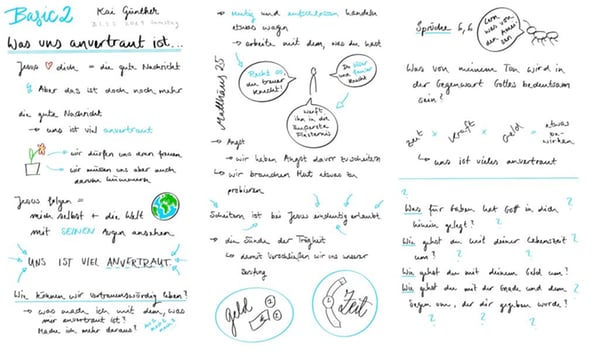 Basic 2
Kai Günther
Was uns anvertraut ist...
Jesus ♡ dich = die gute Nachricht
Aber das ist doch noch mehr
die gute Nachricht
→ uns ist viel anvertraut
→ wir dürfen uns dran freuen
→ wir müssen uns aber auch
darum kümmern
Jesus folgen =
mich selbst + die Welt
mit SEINEN Augen ansehen
UNS IST VIEL ANVERTRAUT.
Wie können wir vertrauenswürdig leben?
→ was mach ich mit dem, was
mir anvertraut ist?
Mache ich mehr daraus?
→ mutig und entschlossen handeln
etwas wagen
→ arbeite mit dem, was du hast
Matthäus 25
Recht so,
du treuer
Knecht!
Du
Knecht
Werft
ihn in die
äußerste
Finsternis
→ Angst
→ wir haben Angst davor zu scheitern
→ wir brauchen Mut etwas zu
probieren
Scheitern ist bei Jesus eindeutig erlaubt
→ die Sünde der Trägheit
→ damit verschließen wir uns unserer
Berufung
Geld
Zeit
Sprüche 6,6
Lern was von
den Amei-
sen
Was von meinem Tun wird in
der Gegenwart Gottes bedeutsam
sein?
Zeit × Kraft × Geld = etwas
be-
wirken
→ uns ist vieles anvertraut
? ? ?
Was für Gaben hat Gott in dich
hinein gelegt?
Wie gehst du mit deiner Lebenszeit
um?
Wie gehst du mit deinem Geld um?
Wie gehst du mit der Gnade und dem
Segen um, der dir gegeben wurde?
? ? ?